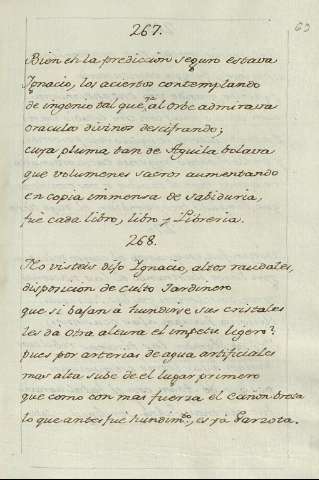 267.
63
Bien en la predicion seguro estava
Ygnacio, los aciertos contemplando
de ingenio tal que ya al orbe admirava
oraculos divinos descifrando;
cuya pluma tan de Aguila bolava
que volumenes sacros aumentando
en copia immensa de sabiduria,
fuè cada libro, libro y Libreria.
268.
No visteis dijo Ygnacio, altos raudales,
disposicion de culto Jardinero
que si bajan à hundirse sus cristales
les dà otra altura el impetu ligero?
pues por arterias de agua artificiales
mas alta sube de el lugar primero
que como con mas fuerza el cañon brota
lo que antes fuè hundimto, es yà Garzota.